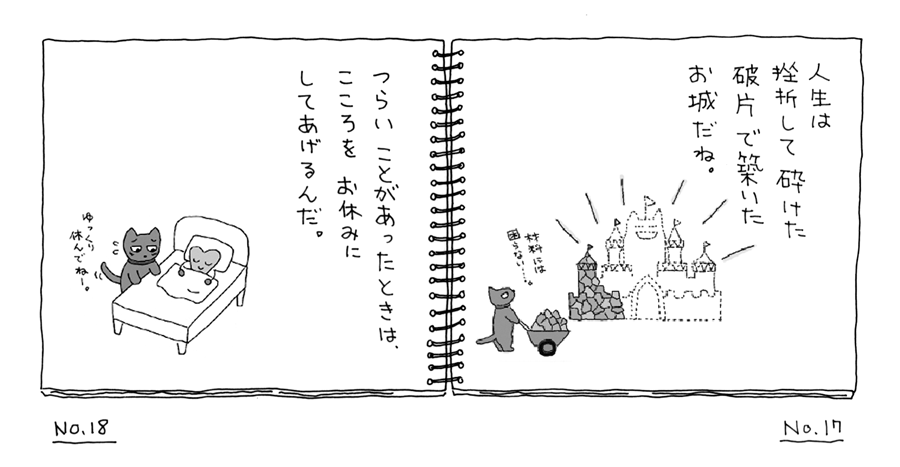 人生は
挫折して 砕けた
破片で築いた
お城だね。
材料には
困らない…。
No.17
つらい ことがあったときは、
こころを お休みに
してあげるんだ。
ゆっくり
休んでねー。
No.18